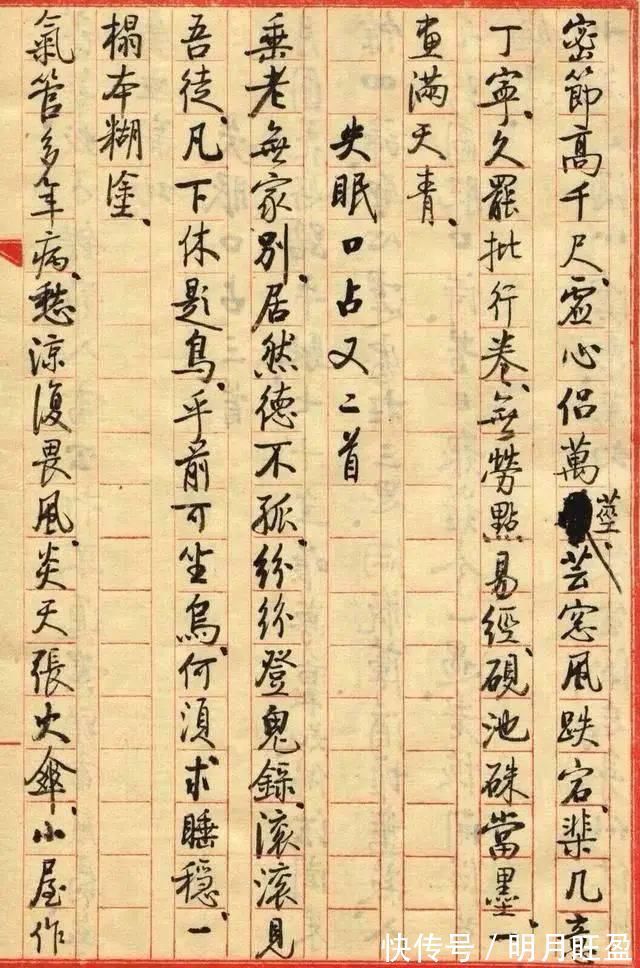 密節高千尺、虛心侶萬莖、芸窓風跌宕、棐几意
丁寧、久罷批行卷、無勞點易經、硯池硃當墨、一
畫滿天青、
失眠口占又二首
垂老無家別、居然德不孤、紛紛登鬼錄、滾滾見
吾徒、凡下休題鳥、乎前可坐烏、何須求睡穩、一
榻本糊塗、
氣管多年病、愁涼復畏風、炎天張火傘、小屋作
快传号/明月旺盈